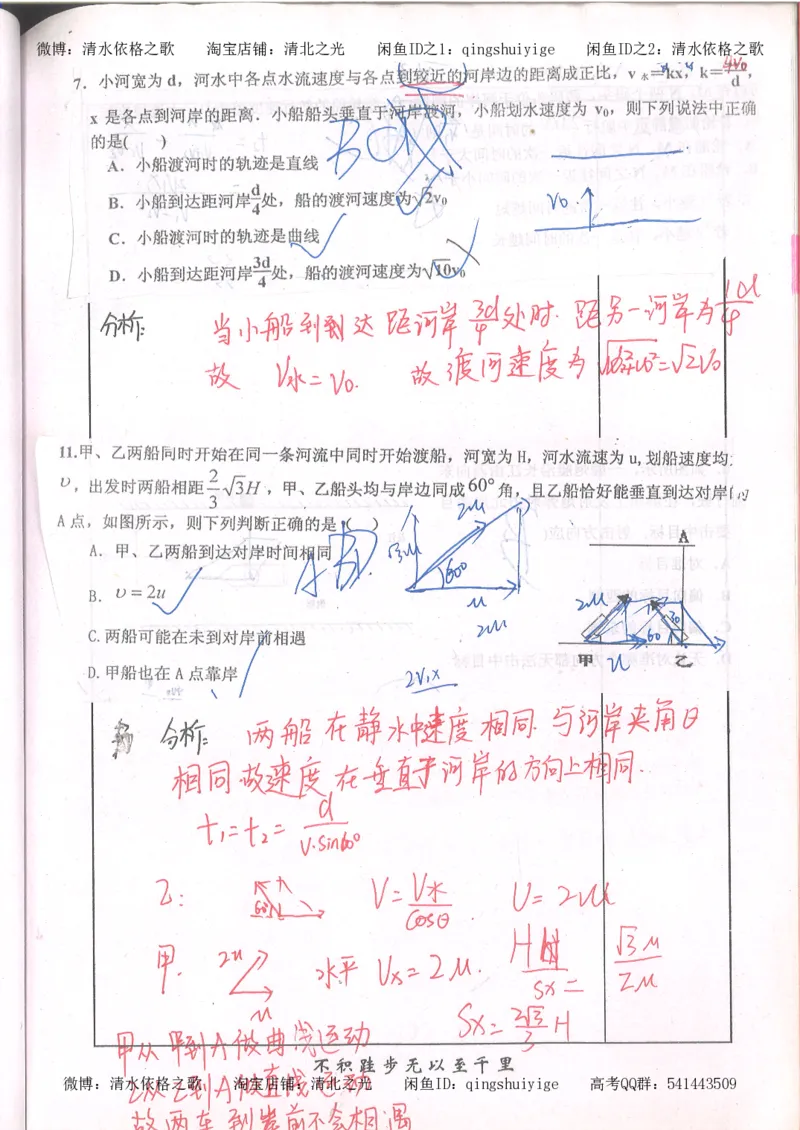 微博：清水依格之歌　　淘宝店铺：清北之光　　闲鱼ID之1：qingshuiyige　　闲鱼ID之2：清水依格之歌
7．小河宽为 d，河水中各点水流速度与各点到较近的河岸边的距离成正比，v水=kx，k=4v₀/d，
x 是各点到河岸的距离．小船船头垂直于河岸渡河，小船划水速度为 v₀，则下列说法中正确
的是(　　)
A．小船渡河时的轨迹是直线
B．小船到达距河岸 d/4 处，船的渡河速度为√2v₀
C．小船渡河时的轨迹是曲线
D．小船到达距河岸 3d/4 处，船的渡河速度为√10v₀
BC
v₀
分析：
当小船到到达距河岸 3d/4 处时．距另一河岸为 1d/4
故 V水=V₀. 故渡河速度为 =√2V₀
11.甲、乙两船同时开始在同一条河流中同时开始渡船，河宽为 H，河水流速为 u,划船速度均为
υ，出发时两船相距 2/3 √3H，甲、乙船头均与岸边同成 60°角，且乙船恰好能垂直到达对岸的
A 点，如图所示，则下列判断正确的是（　　）
A．甲、乙两船到达对岸时间相同
B．υ=2u
C.两船可能在未到对岸前相遇
D.甲船也在 A 点靠岸
ABD.
2u
√3u
60°
u
2u
A
2u
30
60
甲 u 乙
分析：两船在静水中速度相同．与河岸夹角θ
相同故速度在垂直于河岸的方向上相同．
t₁=t₂= d/V·sin60°
乙： 60° V= V水/cosθ U=2u
甲． 2u u 水平 Ux=2u. H/Sx = √3u/2u
Sx= 2√3/3 H
甲从甲到A做曲线运动
不积跬步无以至千里
微博：清水依格之歌　　淘宝店铺：清北之光　　闲鱼ID：qingshuiyige　　高考QQ群：541443509
乙从乙到A做直线运动
故两车到岸前不会相遇